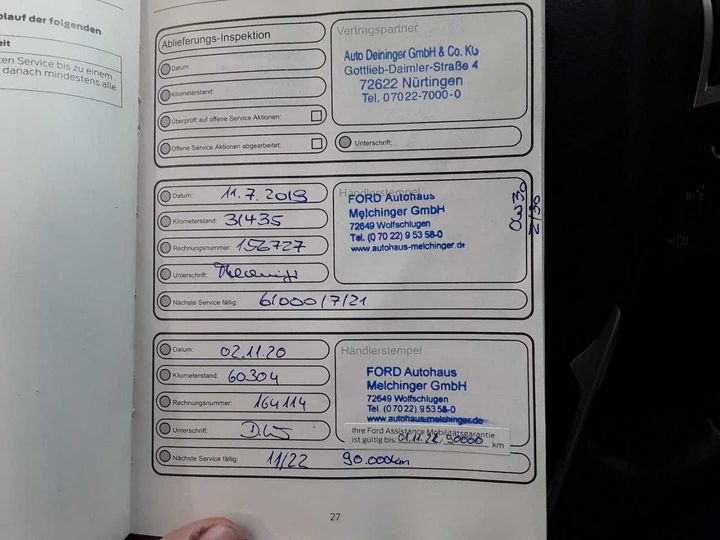 blauf der folgenden
eit
ten Service bis zu einem
danach mindestens alle
Ablieferungs-Inspektion
Datum:
Kilometerstand:
Überprüft auf offene Service Aktionen:
Offene Service Aktionen abgearbeitet:
Vertragspartner
Auto Deininger GmbH & Co. KG
Gottlieb-Daimler-Straße 4
72622 Nürtingen
Tel. 07022-7000-0
Unterschrift:
Datum: 11.7.2019
Kilometerstand: 31435
Rechnungsnummer: 156727
Unterschrift:
Nächste Service fällig: 61000/7/21
Händlerstempel
FORD Autohaus
Melchinger GmbH
72649 Wolfschlugen
Tel. (0 70 22) 9 53 58-0
www.autohaus-melchinger.de
0W30
Datum: 02.11.20
Kilometerstand: 60304
Rechnungsnummer: 164114
Unterschrift:
Nächste Service fällig: 11/22 90.000km
Händlerstempel
FORD Autohaus
Melchinger GmbH
72649 Wolfschlugen
Tel. (0 70 22) 9 53 58-0
www.autohaus-melchinger.de
Ihre Ford Assistance Mobilitätsgarantie
ist gültig bis: 01.11.22, 90000 km
27